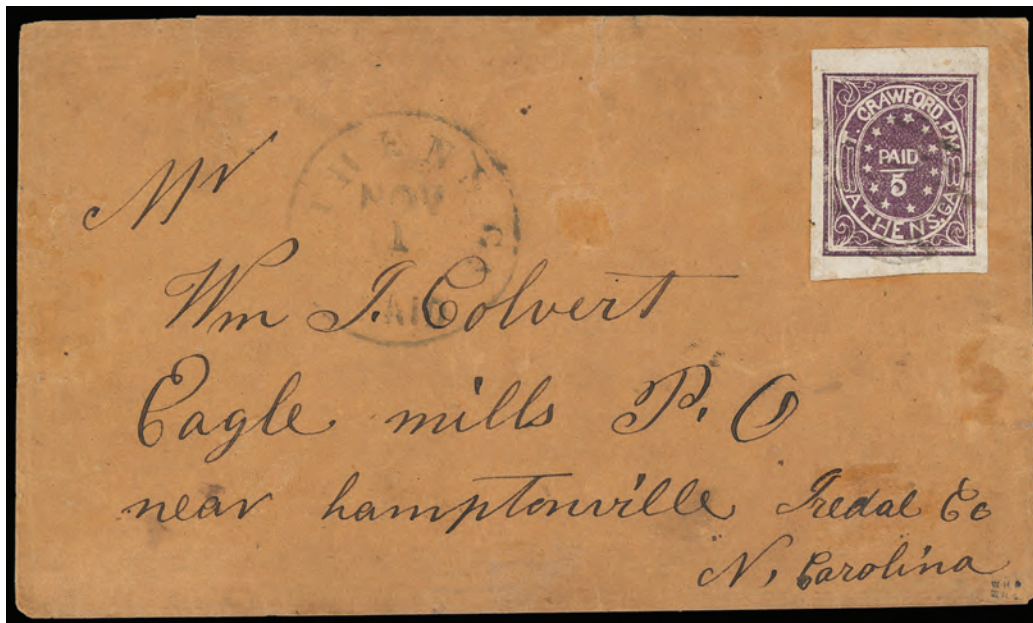 T. CRAWFORD, P.M.
PAID
5
ATHENS, GA
ATHENS GA
NOV
1
PAID
Mr
Wm J. Colvert
Eagle mills P. O
near hamptonville Iredal Co
N, Carolina